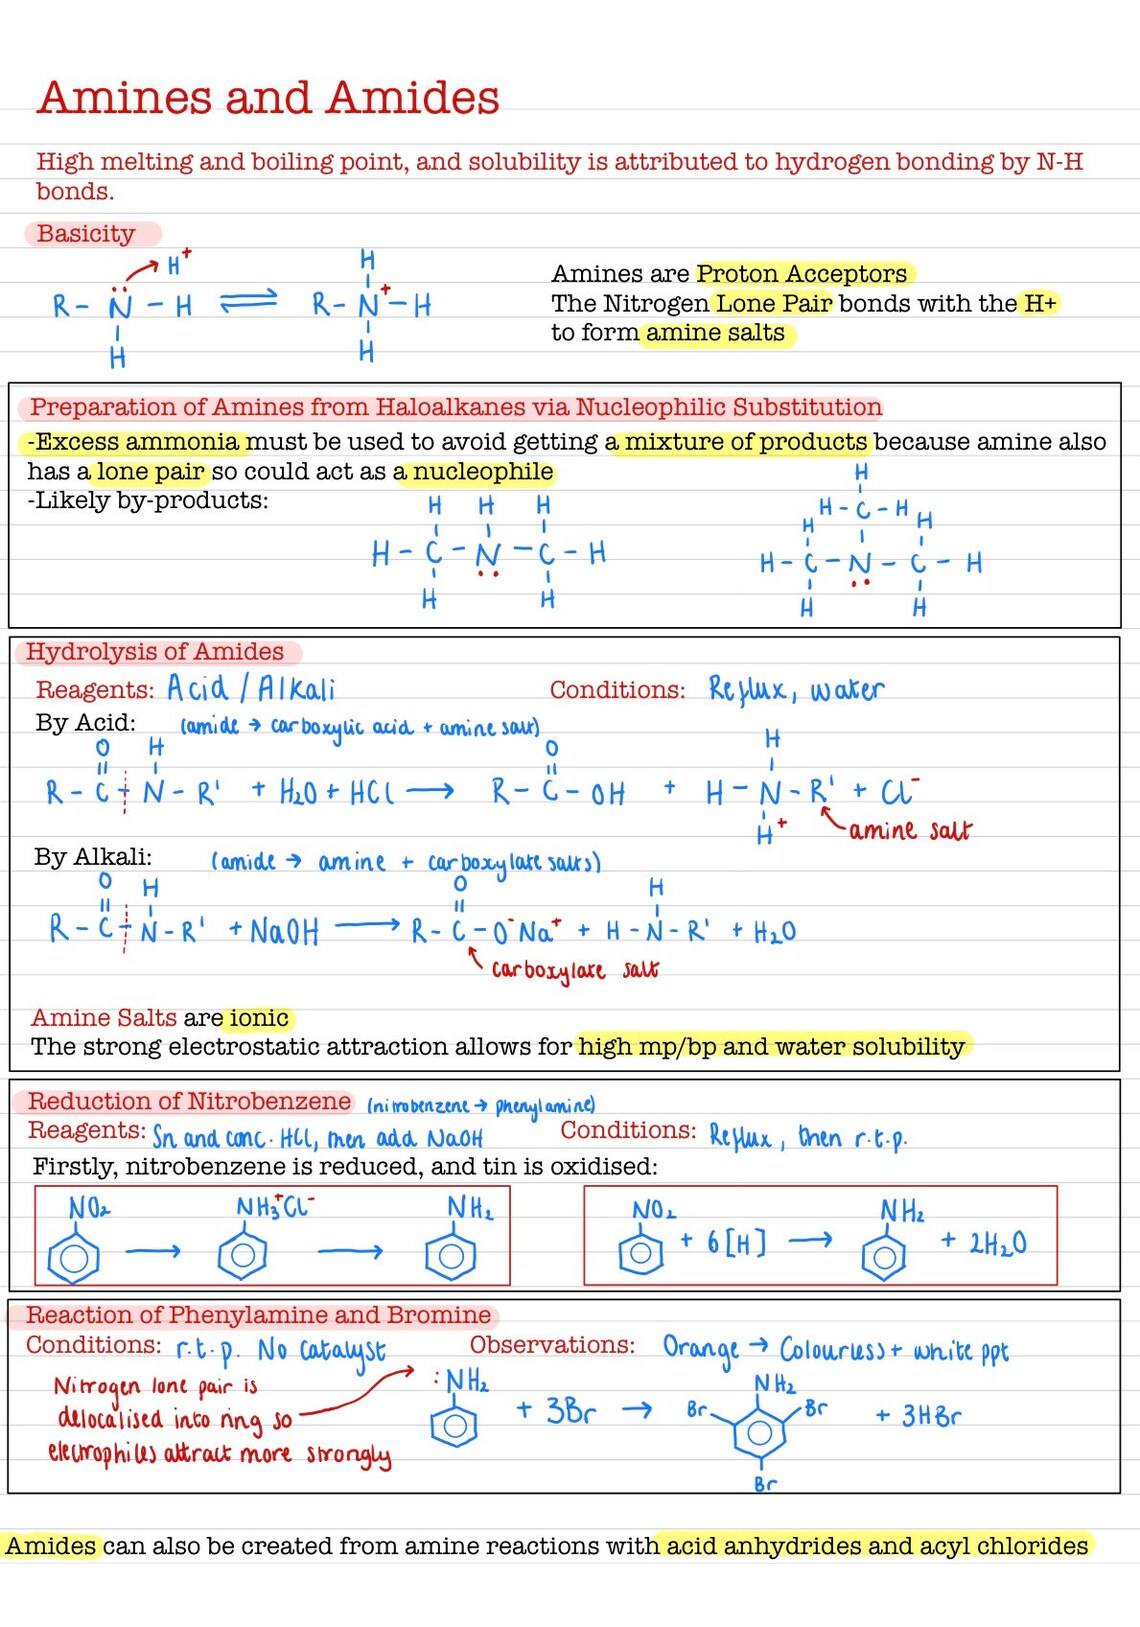 Amines and Amides
High melting and boiling point, and solubility is attributed to hydrogen bonding by N-H
bonds.
Basicity
H+
H
R - N - H ⇌ R - N+ - H
H
H
Amines are Proton Acceptors
The Nitrogen Lone Pair bonds with the H+
to form amine salts
Preparation of Amines from Haloalkanes via Nucleophilic Substitution
-Excess ammonia must be used to avoid getting a mixture of products because amine also
has a lone pair so could act as a nucleophile
-Likely by-products:
H H H
H - C - N - C - H
H H
H
H - C - H
H H
H - C - N - C - H
H H
Hydrolysis of Amides
Reagents: Acid / Alkali
Conditions: Reflux, water
By Acid: (amide → carboxylic acid + amine salt)
O H O H
R - C - N - R' + H2O + HCl → R - C - OH + H - N - R' + Cl-
H+
amine salt
By Alkali: (amide → amine + carboxylate salts)
O H O H
R - C - N - R' + NaOH → R - C - O-Na+ + H - N - R' + H2O
carboxylate salt
Amine Salts are ionic
The strong electrostatic attraction allows for high mp/bp and water solubility
Reduction of Nitrobenzene (nitrobenzene → phenylamine)
Reagents: Sn and conc. HCl, then add NaOH
Conditions: Reflux, then r.t.p.
Firstly, nitrobenzene is reduced, and tin is oxidised:
NO2 → NH3+Cl- → NH2
NO2 + 6[H] → NH2 + 2H2O
Reaction of Phenylamine and Bromine
Conditions: r.t.p. No catalyst
Observations: Orange → Colourless + white ppt
Nitrogen lone pair is
delocalised into ring so
electrophiles attract more strongly
:NH2 + 3Br → NH2 Br Br Br + 3HBr
Amides can also be created from amine reactions with acid anhydrides and acyl chlorides